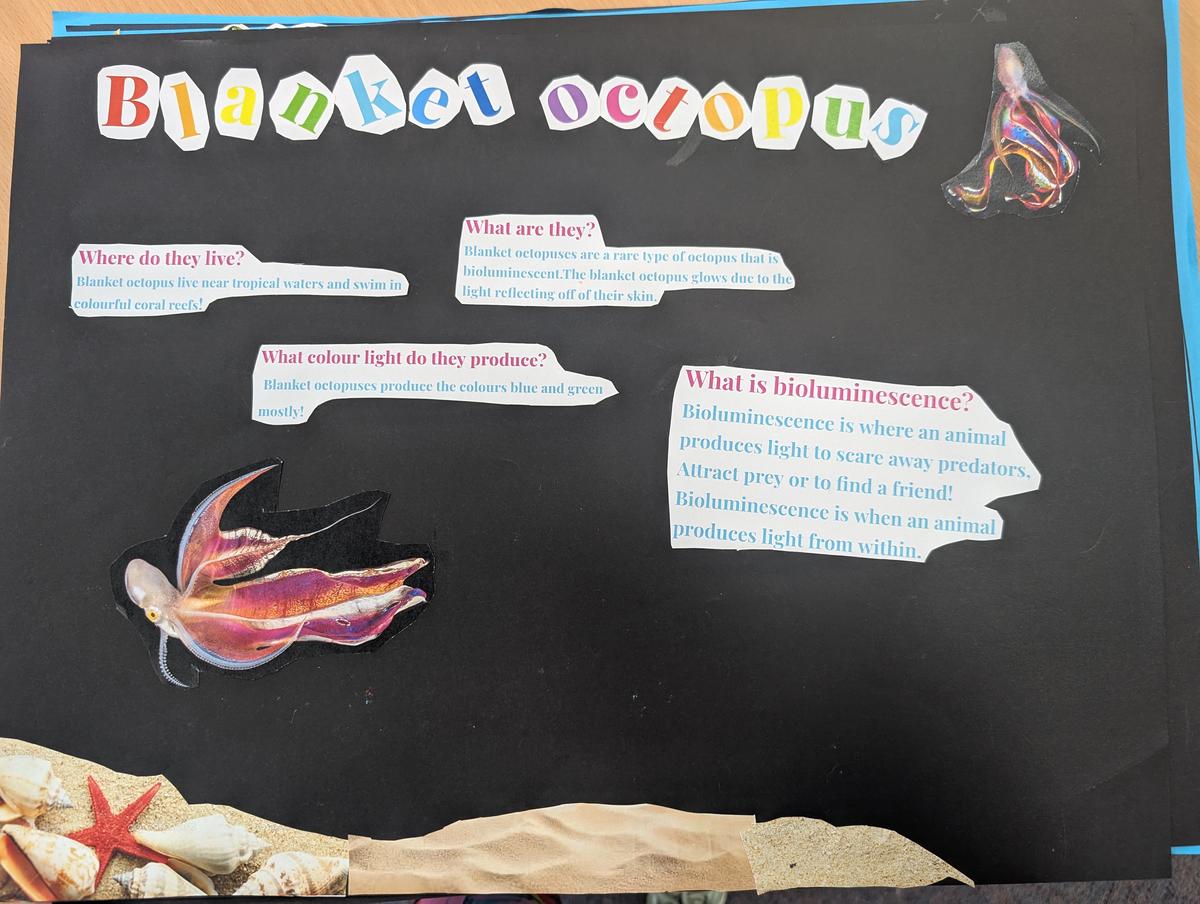 Blanket octopus
Where do they live?
Blanket octopus live near tropical waters and swim in
colourful coral reefs!
What are they?
Blanket octopuses are a rare type of octopus that is
bioluminescent.The blanket octopus glows due to the
light reflecting off of their skin.
What colour light do they produce?
Blanket octopuses produce the colours blue and green
mostly!
What is bioluminescence?
Bioluminescence is where an animal
produces light to scare away predators,
Attract prey or to find a friend!
Bioluminescence is when an animal
produces light from within.